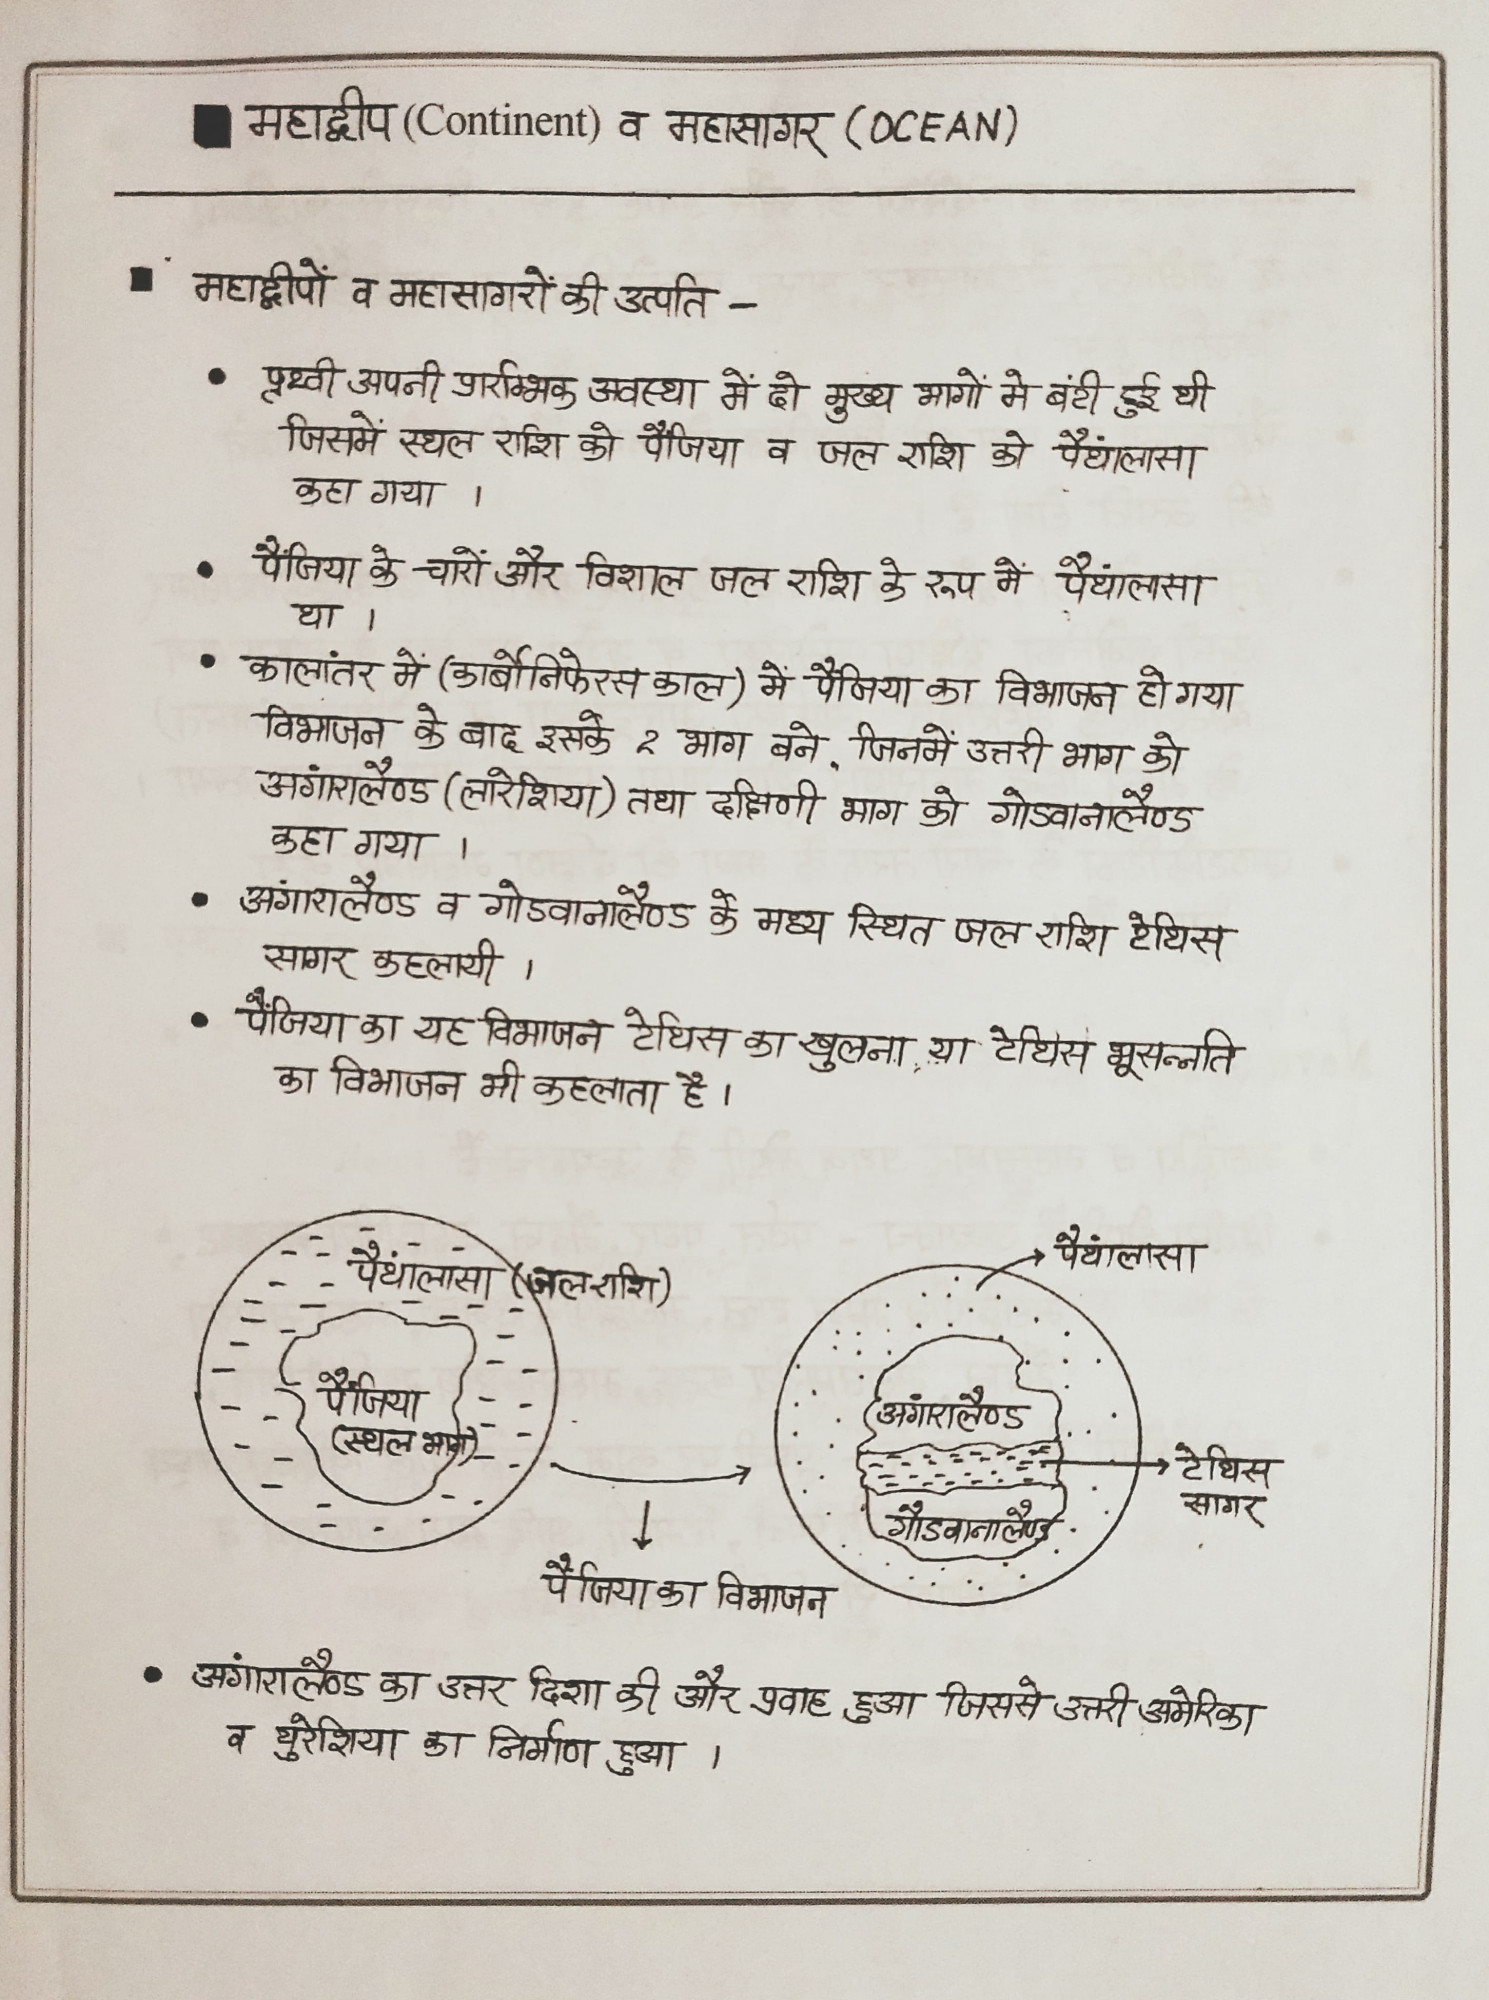 महाद्वीप (Continent) व महासागर (OCEAN)
महाद्वीपों व महासागरों की उत्पति –
पृथ्वी अपनी प्रारम्भिक अवस्था में दो मुख्य भागों मे बंटी हुई थी
जिसमें स्थल राशि को पैंजिया व जल राशि को पैंथालासा
कहा गया ।
पैंजिया के चारों और विशाल जल राशि के रूप में पैंथालासा
था ।
कालांतर में (कार्बोनिफेरस काल) में पैंजिया का विभाजन हो गया
विभाजन के बाद इसके २ भाग बने, जिनमें उत्तरी भाग को
अगांरालैण्ड (लारेशिया) तथा दक्षिणी भाग को गोडवानालैण्ड
कहा गया ।
अंगारालैण्ड व गोडवानालैण्ड के मध्य स्थित जल राशि टेथिस
सागर कहलायी ।
पैंजिया का यह विभाजन टेथिस का खुलना या टेथिस भूसन्नति
का विभाजन भी कहलाता है ।
पैथांलासा (जलराशि)
पैंजिया
(स्थल भाग)
पैथांलासा
अगांरालैण्ड
टेथिस
सागर
गौडवानालैण्ड
पैंजिया का विभाजन
अगांरालैण्ड का उत्तर दिशा की और प्रवाह हुआ जिससे उत्तरी अमेरिका
व युरेशिया का निर्माण हुआ ।